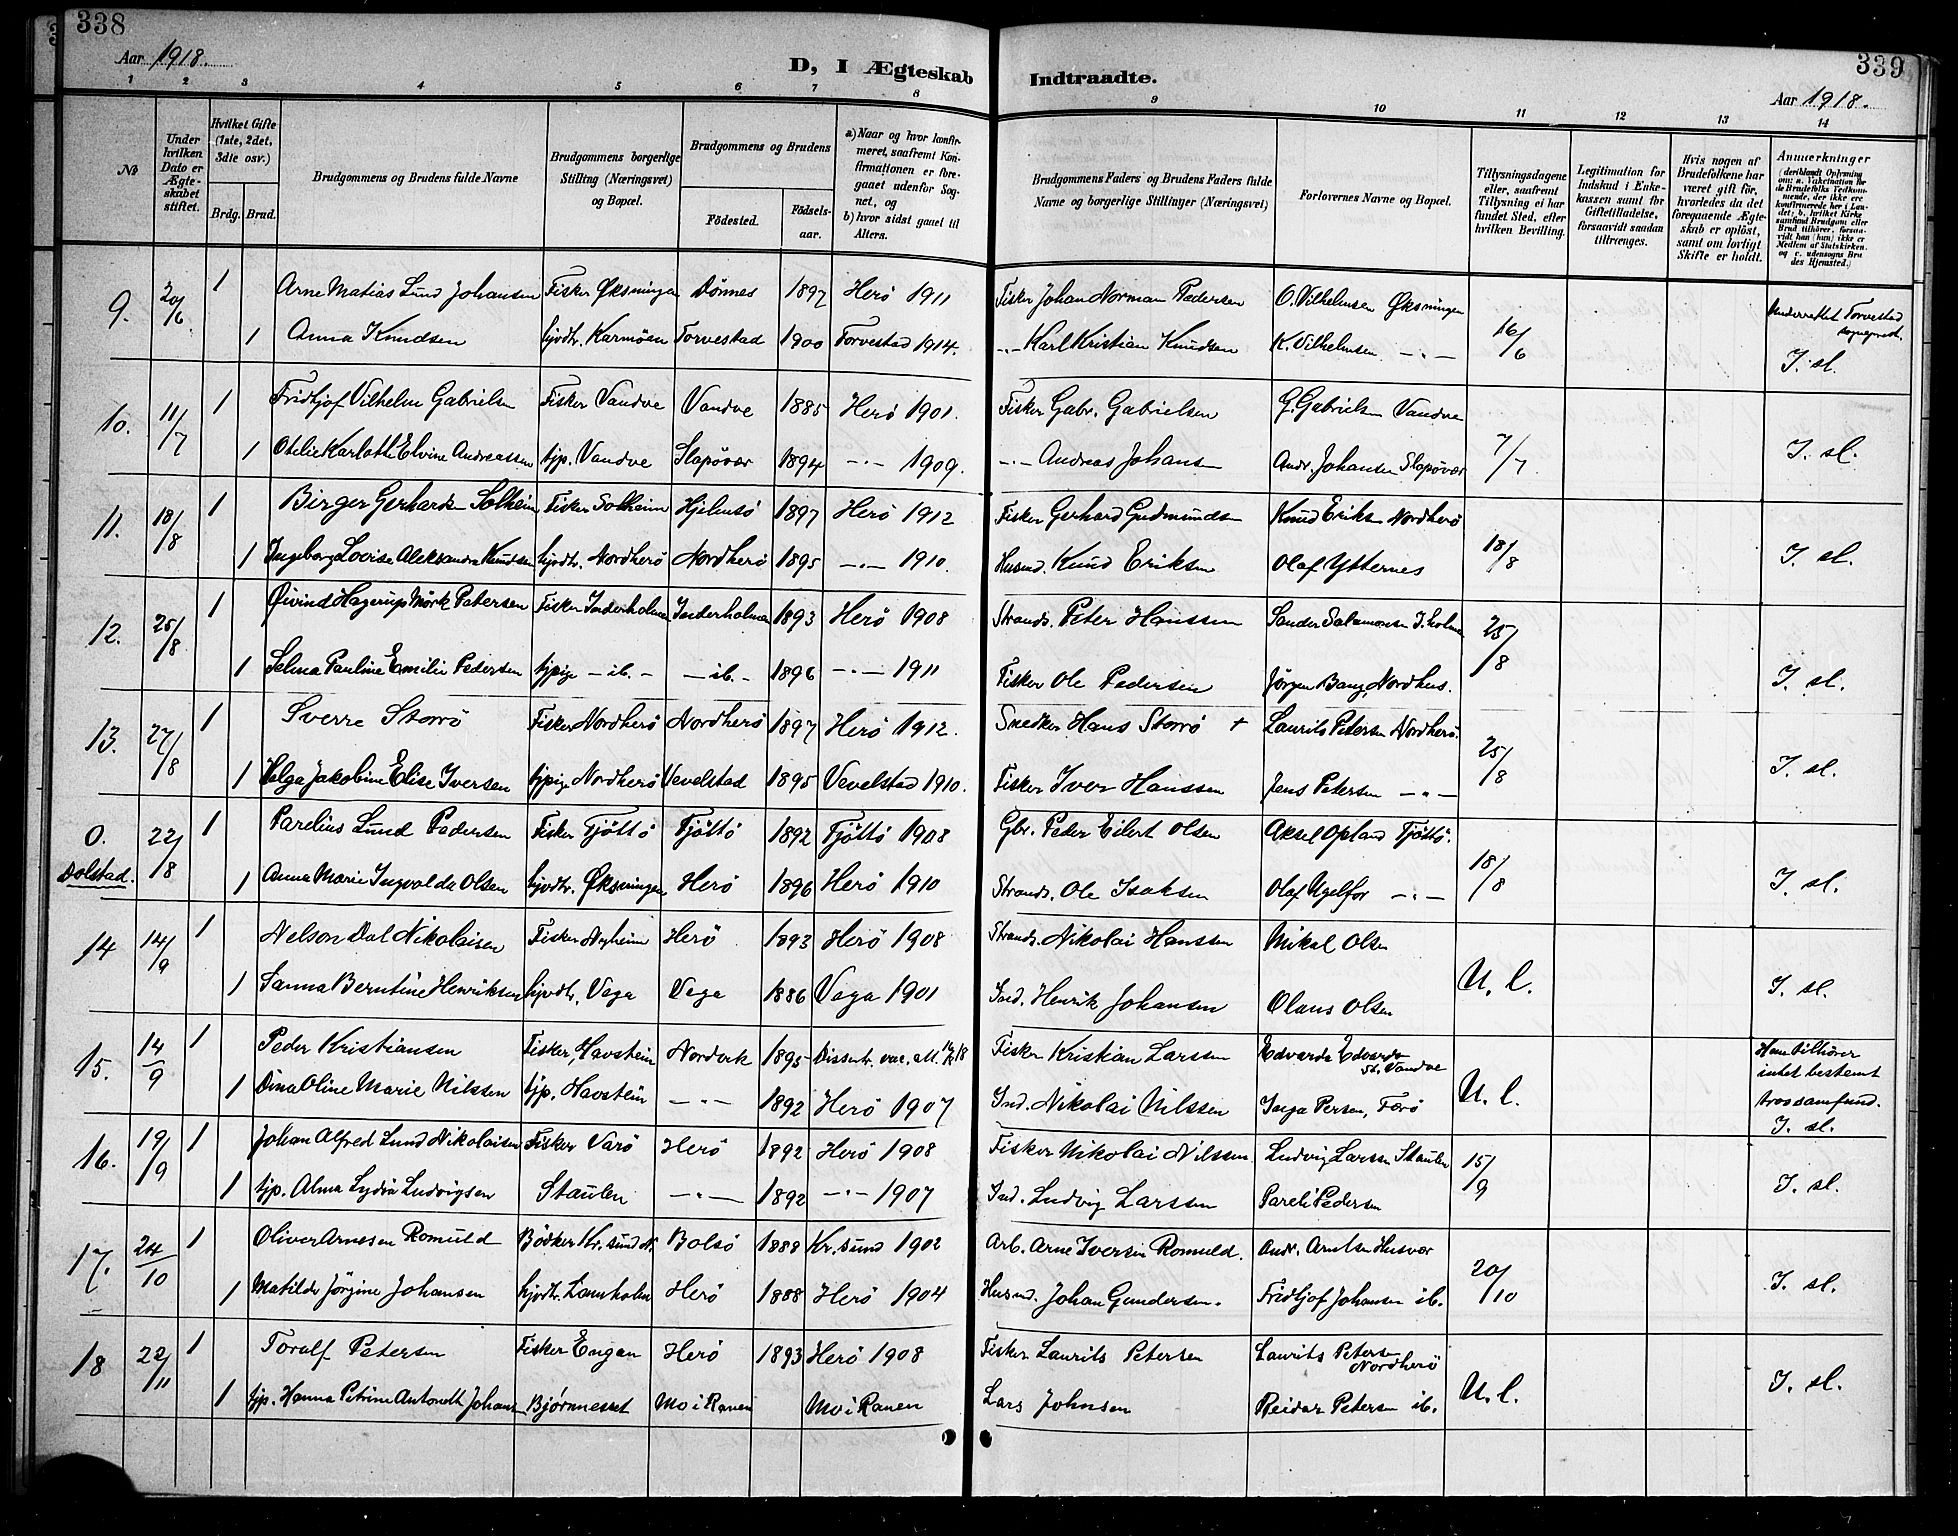 338
Aar 1918.
D, I Ægteskab Indtraadte.
339
Aar 1918.
1 2 3 4 5 6 7 8 9 10 11 12 13 14
No
Under hvilken Dato er Ægteskabet stiftet.
Hvilket Gifte (1ste, 2det, 3die osv.)
Brdg. Brud.
Brudgommens og Brudens fulde Navne
Brudgommens borgerlige Stilling (Næringsvei) og Bopæl.
Brudgommens og Brudens
Fødested.
Fødselsaar.
a) Naar og hvor konfirmeret, saafremt Konfirmationen er foregaaet udenfor Sognet, og
b) hvor sidst gaaet til Alters.
Brudgommens Faders og Brudens Faders fulde Navne og borgerlige Stillinger (Næringsvei)
Forlovernes Navne og Bopæl.
Tillysningsdagene eller, saafremt Tillysning ei har fundet Sted, efter hvilken Bevilling.
Legitimation for Indskud i Enkekassen samt for Giftetilladelse, forsaavidt saadan tiltrænges.
Hvis nogen af Brudefolkene har været gift før, hvorledes da det foregaaende Ægteskab er opløst, samt om lovligt Skifte er holdt.
Anmerkninger (deriblandt Oplysning om: a. Vakcination for de Brudefolks Vedkommende, der ikke ere konfirmerede her i Landet; b. hvilket Kirkesamfund Brudgom eller Brud tilhører, forsaavidt han (hun) ikke er Medlem af Statskirken, og c. udensogns Brudes Hjemsted.)
9. 20/6 1 Arne Matias Lund Johansen Fisker Øksningen Dønnes 1897 Herö 1911 Fisker Johan Norman Pedersen O. Vilhelmsen Øksningen 16/6 Underrettet Torvestad sogneprest.
1 Anna Knudsen hjvdtr. Karmöen Torvestad 1900 Torvestad 1914. -"- Karl Kristian Knudsen K. Vilhelmsen -"- I. sl.
10. 11/7 1 Fridtjof Vilhelm Gabrielsen Fisker Vandve Vandve 1885 Herö 1901. Fisker Gabr. Gabrielsen G. Gabrielsen Vandve 7/7 I. sl.
1 Otelie Karlotte Elvine Andreassen tjp. Vandve Slapövær 1894 -"- 1909. -"- Andreas Johans Andr. Johansen Slapövær
11. 18/8 1 Birger Gerhardsen Solheim Fisker Solheim Hjelmsö 1897 Herö 1912 Fisker Gerhard Gudmundsen Knud Eriks Nordherö 18/8 I. sl.
1 Ingeborg Lovise Aleksandra Knudsen hjvdtr. Nordherö Nordherö 1895 -"- 1910. Husmd. Knud Eriksen Olaf Ytternes
12. 25/8 1 Øivind Hagerup Mörk Petersen Fisker Inderholmen Inderholmen 1893 Herö 1908 Strands. Peter Hanssen Sander Salamonsen I. holmen 25/8
1 Selma Pauline Emilie Pedersen tjpige - ib. - - ib. - 1896 -"- 1911 Fisker Ole Pedersen Jörgen Bang, Nordhus. I. sl.
13. 27/8 1 Sverre Storrö Fisker Nordherö Nordherö 1897 Herö 1912. Snedker Hans Storrö + Laurits Petersen Nordherö. 25/8
1 Helga Jakobine Elise Iversen tjpige Nordherö Vevelstad 1895 Vevelstad 1910. Fisker Iver Hanssen Jens Petersen -"- I. sl.
O. Dolstad. 22/8 1 Parelius Lund Pedersen Fisker Tjöttö Tjöttö 1892 Tjöttö 1908 Gbr. Peder Eilert Olsen Aksel Opland Tjöttö. 18/8
1 Anna Marie Ingvalda Olsen hjvdtr. Øksningen Herö 1896 Herö 1910 Strands. Ole Isaksen Olaf Ugelfor -"- I. sl.
14 14/9 1 Nelson Dal Nikolaisen Fisker Nyheim Herö 1893 Herö 1908 Strands. Nikolai Hanssen Mikal Olsen U. l.
1 Sanna Berntine Henriksen hjvdtr, Vega Vega 1886 Vega 1901 Ind. Henrik Johansen Olaus Olsen I. sl.
15. 14/9 1 Peder Kristiansen Fisker, Havstein Nordvik 1895 Dissentr. Fisker Kristian Larssen Edvards St. Vandve U. l. Han tilhörer intet bestemt trossamfund.
1 Dina Oline Marie Nilssen tjp. Havstein -"- 1892 Herö 1907 Ind. Nikolai Nilssen Inga Persen, Færö I. sl.
16. 19/9 1 Johan Alfred Lund Nikolaisen Fisker Varö Herö 1892 Herö 1908 Fisker Nikolai Nilssen. Ludvig Larssen Staulen 15/9
1 tjp. Alma Lydia Ludvigsen Staulen -"- 1892 -"- 1907 Ind. Ludvig Larssen Pareli Pedersen I. sl.
17. 24/10 1 Oliver Arnesen Romuld Bödker Kr. sund N. Bolsö 1888 Kr. sund 1902 Arb. Arne Iversen Romuld. Andr. Arntsen Husvær 20/10
1 Matilde Jörgine Johansen hjvdtr. Lamholm Herö 1888 Herö 1904 Husmd. Johan Gundersen. Fridtjof Johansen ib. I. sl.
18 22/11 1 Toralf Petersen Fisker Engan Herö 1893 Herö 1908 Fisker Laurits Petersen Laurits Petersen Nordherö U. l.
1 tjp. Hanna Petrine Johans Bjørnneset Mo i Ranen Mo i Ranen Lars Johnsen Reidar Petersen ib. I. sl.